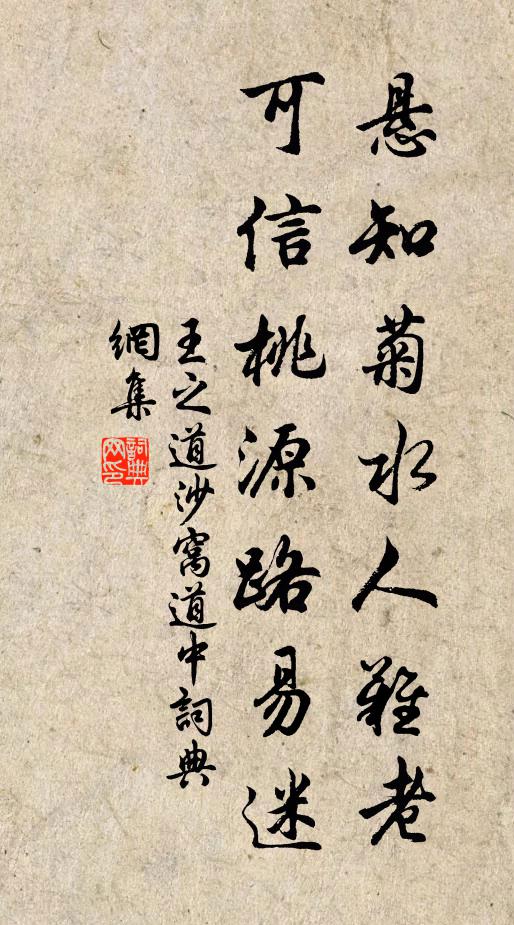 悬知菊水人難老
可信桃源路易迷
王之道沙窩道中詞典
網集
詞典网印